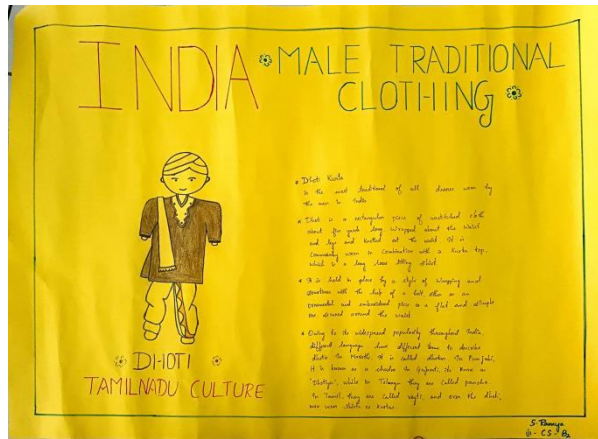 INDIA
MALE TRADITIONAL
CLOTHING
• Dhoti Kurta
is the most traditional of all dresses worn by
the men in India
• Dhoti is a rectangular piece of unstitched cloth
about five yards long wrapped about the waist
and legs and knotted at the waist. It is
commonly worn in combination with a Kurta top,
which is a long loose fitting shirt.
• It is held in place by a style of wrapping and
sometimes with the help of a belt, often or an
ornamental and embroidered piece or a flat and simple
one around the waist
• Owing to its widespread popularity throughout India,
different language have different name to describe
dhoti In Marathi it is called dhotar In Punjabi,
it is known as a chadra In Gujarati its know as
"Dhotiyu", while in Telugu they are called pancha
In Tamil, they are called veşti, and over the dhoti,
men wear shirts or Kurtas.
DHOTI
TAMILNADU CULTURE